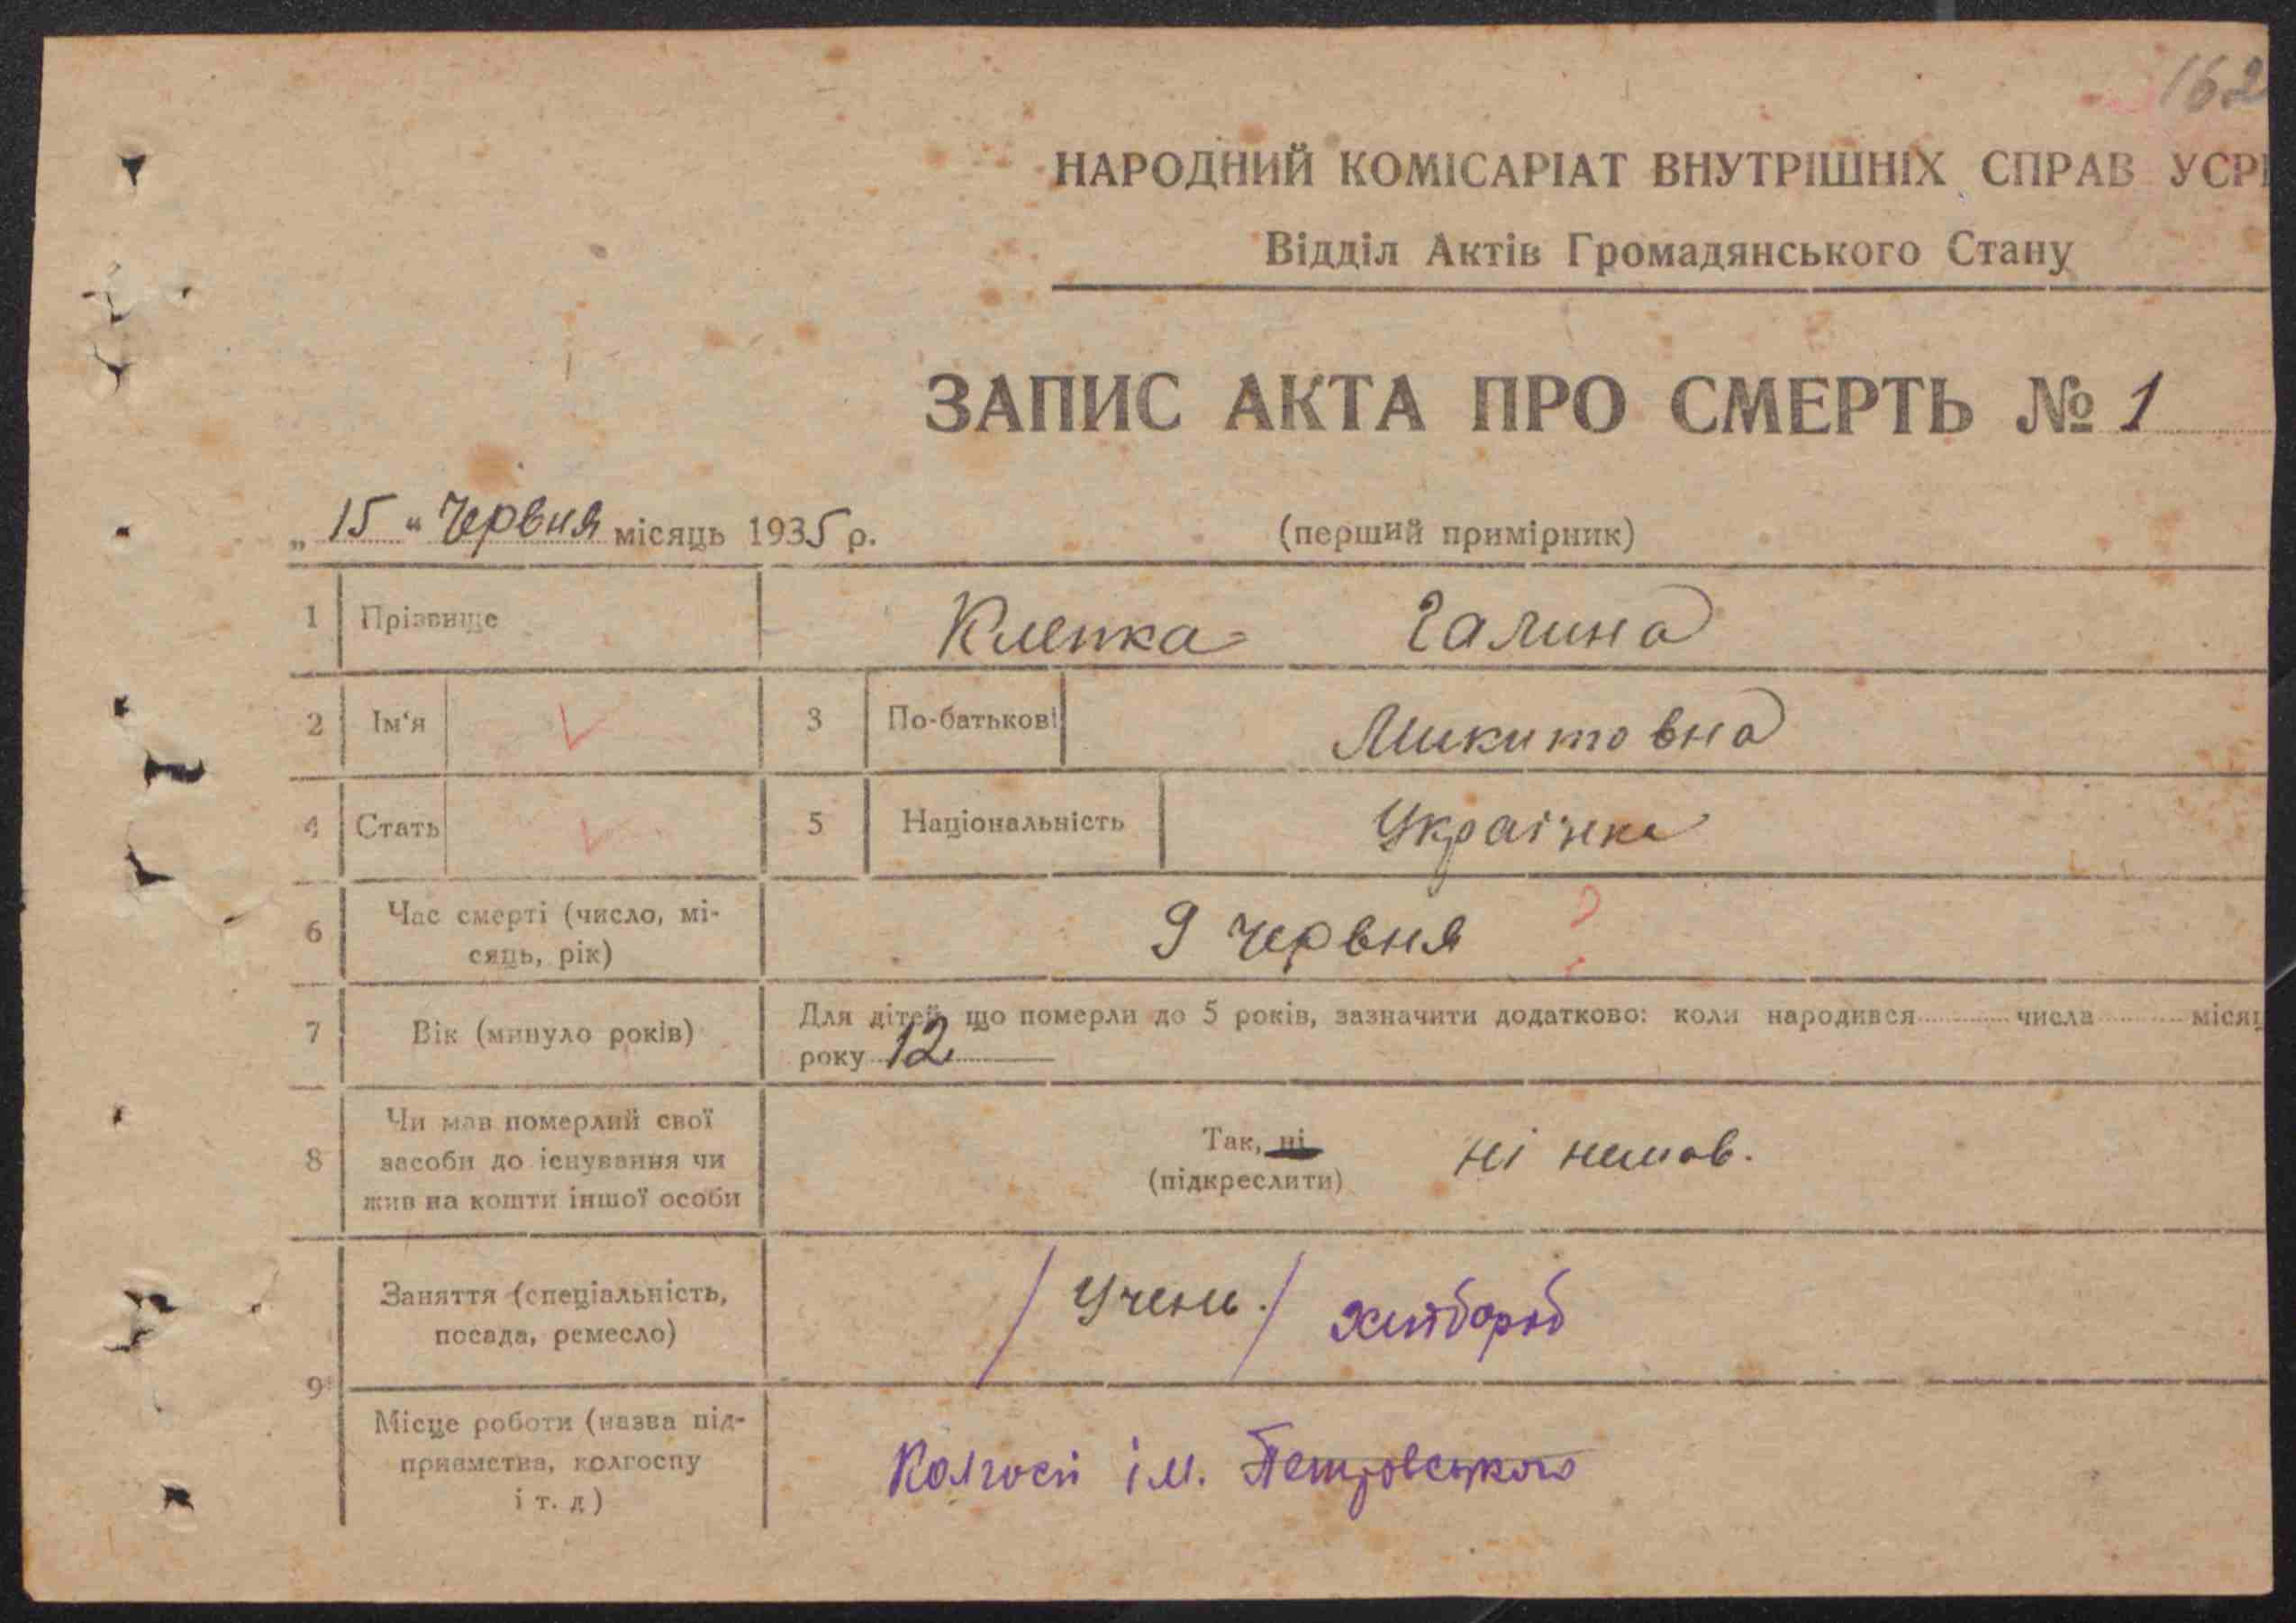 162
НАРОДНИЙ КОМІСАРІАТ ВНУТРІШНІХ СПРАВ УСРР
Відділ Актів Громадянського Стану
ЗАПИС АКТА ПРО СМЕРТЬ № 1
„ 15 “ Червня місяць 1935 р. (перший примірник)
1 Прізвище Клепка Галина
2 Ім‘я 3 По-батькові Микитовна
4 Стать 5 Національність Українка
6 Час смерті (число, мі-
сяць, рік) 9 червня ?
7 Вік (минуло років) Для дітей що померли до 5 років, зазначити додатково: коли народився числа місяц
року 12
8 Чи мав померлий свої
засоби до існування чи
жив на кошти іншої особи
Так, ні ні немав.
(підкреслити)
9 Заняття (спеціальність,
посада, ремесло) / Учень. / хлібороб
Місце роботи (назва під-
приємства, колгоспу
і т. д)
Колгосп ім. Петровського